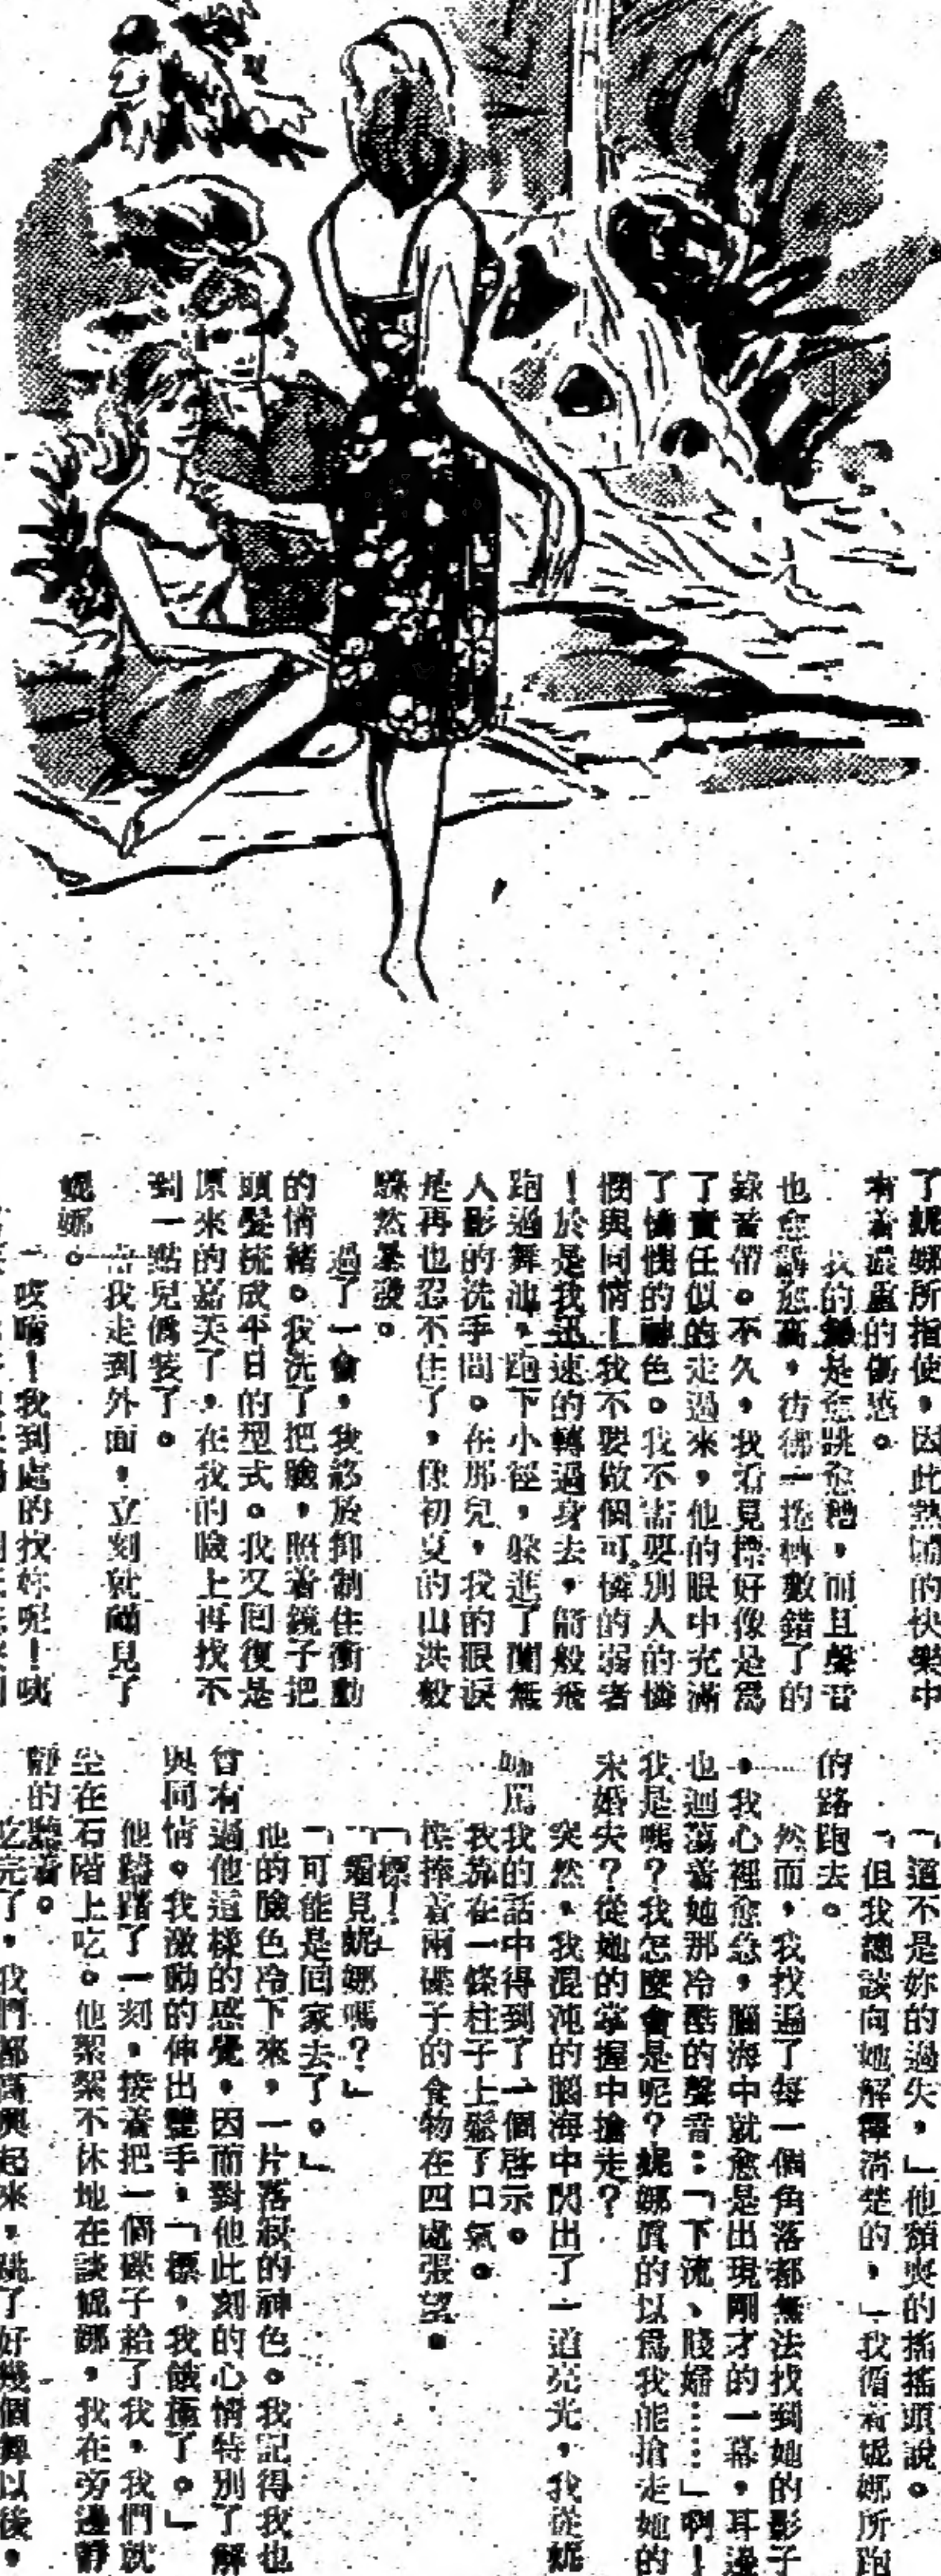 了妮娜所指使，因此熱鬧的快樂中
有着濃重的傷感。
我的舞是愈跳愈糟，而且聲音
也愈講愈高，彷彿一捲轉數錯了的
錄音帶。不久，我看見標好像是爲
了責任似的走過來，他的眼中充滿
了憐憫的神色。我不需要別人的憐
憫與同情！我不要做個可憐的弱者
！於是我迅速的轉過身去，箭般飛
跑過舞池，跑下小徑，躲進了闃無
人影的洗手間。在那兒，我的眼淚
是再也忍不住了，像初夏的山洪般
驟然暴發。
過了一會，我終於抑制住衝動
的情緒。我洗了把臉，照着鏡子把
頭髮梳成平日的型式。我又囘復是
原來的嘉芙了，在我的臉上再找不
到一點兒僞裝了。
當我走到外面，立刻就瞄見了
妮娜。
「哎唷！我到處的找妳呢！咦
「這不是妳的過失，」他頹喪的搖搖頭說。
「但我總該向她解釋淸楚的，」我循着妮娜所跑
的路跑去。
然而，我找遍了每一個角落都無法找到她的影子
，我心裡愈急，腦海中就愈是出現剛才的一幕，耳邊
也迴蕩着她那冷酷的聲音：「下流、賤婦……」啊！
我是嗎？我怎麼會是呢？妮娜眞的以爲我能搶走她的
未婚夫？從她的掌握中搶走？
突然，我混沌的腦海中閃出了一道亮光，我從妮
娜罵我的話中得到了一個啓示。
我靠在一條柱子上鬆了口氣。
標捧着兩碟子的食物在四處張望。
「標！」
「看見妮娜嗎？」
「可能是囘家去了。」
他的臉色冷下來，一片落寂的神色。我記得我也
曾有過他這樣的感覺，因而對他此刻的心情特別了解
與同情。我激動的伸出雙手，「標，我餓極了。」
他躊躇了一刻，接着把一個碟子給了我，我們就
坐在石階上吃。他絮絮不休地在談妮娜，我在旁邊靜
靜的聽着。
吃完了，我們都高興起來，跳了好幾個舞以後，